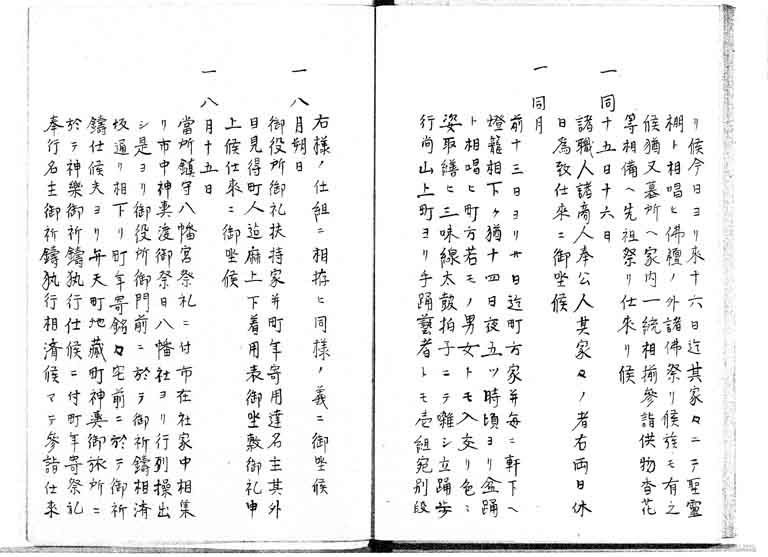 リ候今日ヨリ来十六日迄其家々ニテ聖霊
棚ト相唱ヒ佛檀ノ外諸佛祭リ候族モ有之
候猶又墓所ヘ家内一統相揃參詣供物香花
等相備ヘ先祖祭リ仕來リ候
一同十五日十六日
諸職人諸商人奉公人其家々ノ者右両日休
日為致仕来ニ御坐候
一同月
前十三日ヨリ廿日迄町方家并毎ニ軒下ヘ
燈籠相下ケ猶十四日夜五ツ時頃ヨリ盆踊
ト相唱ヒ町方若モノ男女トモ入交リ色々
姿取繕ヒ三味線太鼓拍子ニテ囃シ立踊歩
行尚山上町ヨリ手踊藝者トモ壱組宛別段
右様ノ仕組ニ相拵ヒ同様ノ義ニ御坐候
一八月朔日
御役所御礼扶持家并町年寄用達名主其外
目見得町人迠麻上下着用表御坐敷御礼申
上候仕来ニ御坐候
一八月十五日
當所鎮守八幡宮祭礼ニ付市在社家中相集
リ市中神輿渡御祭日八幡社ヨリ行列操出
シ是ヨリ御役所御門前ニ於テ御祈鑄相済
坂通リ相下リ町年寄銘々宅前ニ於テ御祈
鑄仕候夫ヨリ弁天町地藏町神輿御旅所ニ
於テ神樂御祈鑄執行仕候ニ付町年寄祭礼
奉行名主御祈鑄執行相済候マテ參詣仕来